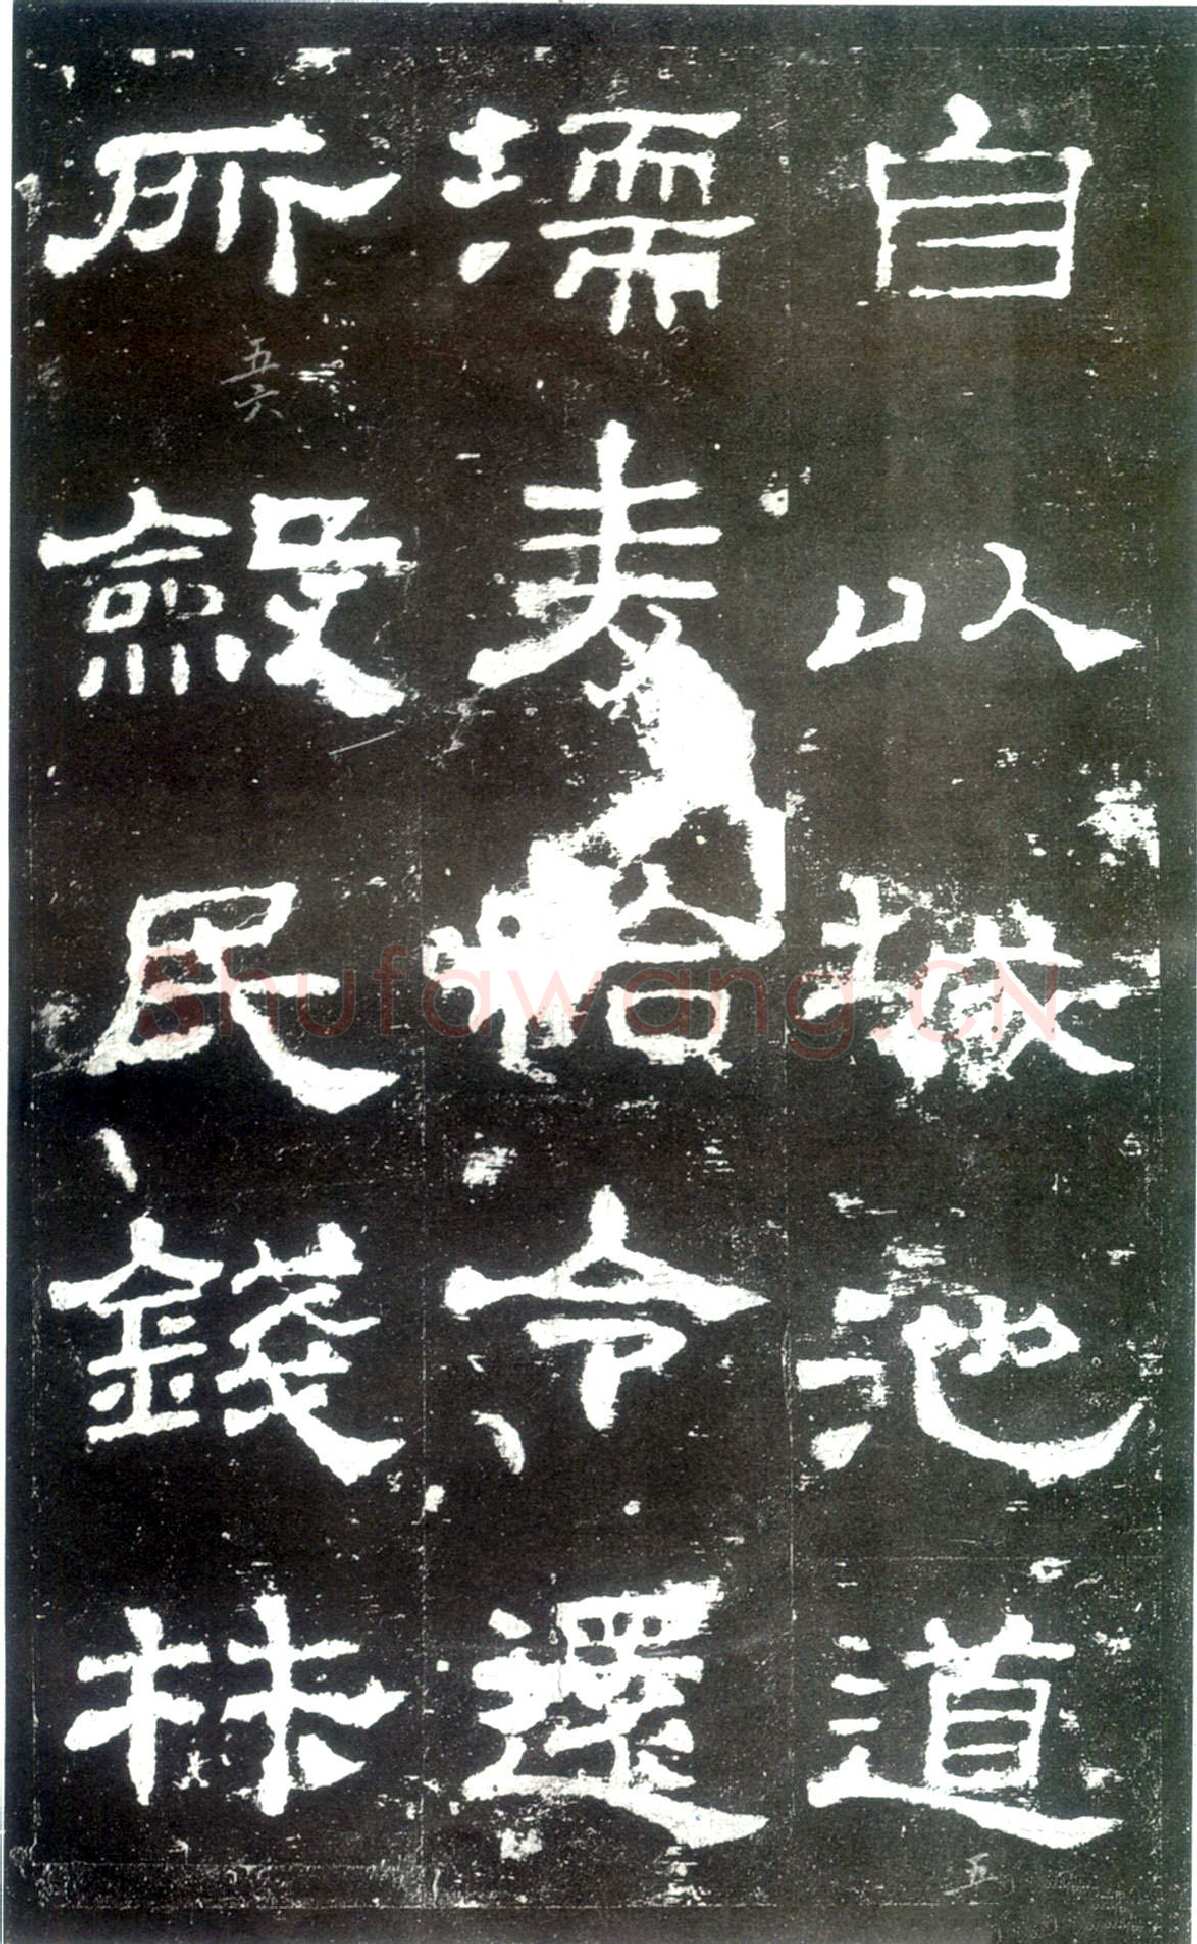 自以城池道
濡麥給令還
所斂民錢材
五六
五
Shufawang.CN